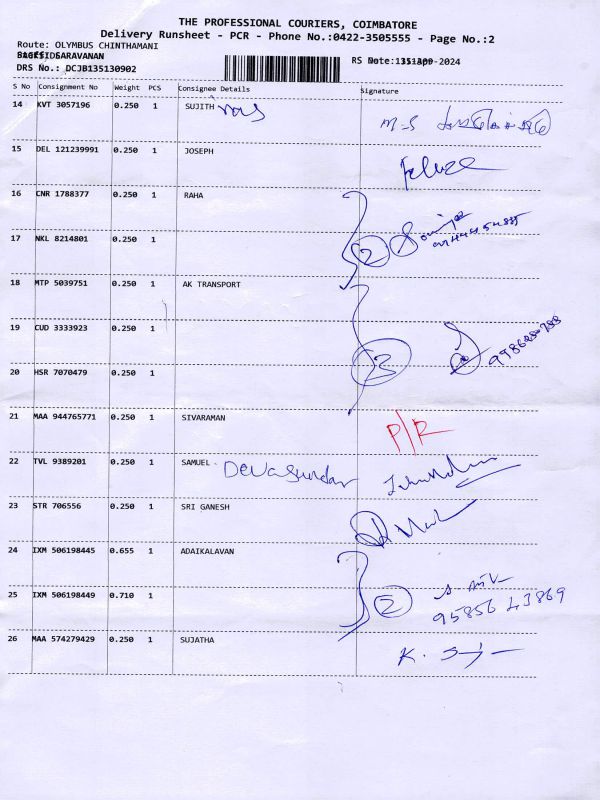 THE PROFESSIONAL COURIERS, COIMBATORE
Delivery Runsheet - PCR - Phone No.:0422-3505555 - Page No.:2
Route: OLYMBUS CHINTHAMANI
SARAVANAN
DRS No.: DCJB135130902
RS Date: -2024
S No Consignment No Weight PCS Consignee Details Signature
14 KVT 3057196 0.250 1 SUJITH M-S
15 DEL 121239991 0.250 1 JOSEPH
16 CNR 1788377 0.250 1 RAHA
17 NKL 8214801 0.250 1 2
18 MTP 5039751 0.250 1 AK TRANSPORT
19 CUD 3333923 0.250 1 3
20 HSR 7070479 0.250 1
21 MAA 944765771 0.250 1 SIVARAMAN P/R
22 TVL 9389201 0.250 1 SAMUEL Devasundar
23 STR 706556 0.250 1 SRI GANESH
24 IXM 506198445 0.655 1 ADAIKALAVAN
25 IXM 506198449 0.710 1 2 95856 43869
26 MAA 574279429 0.250 1 SUJATHA K.